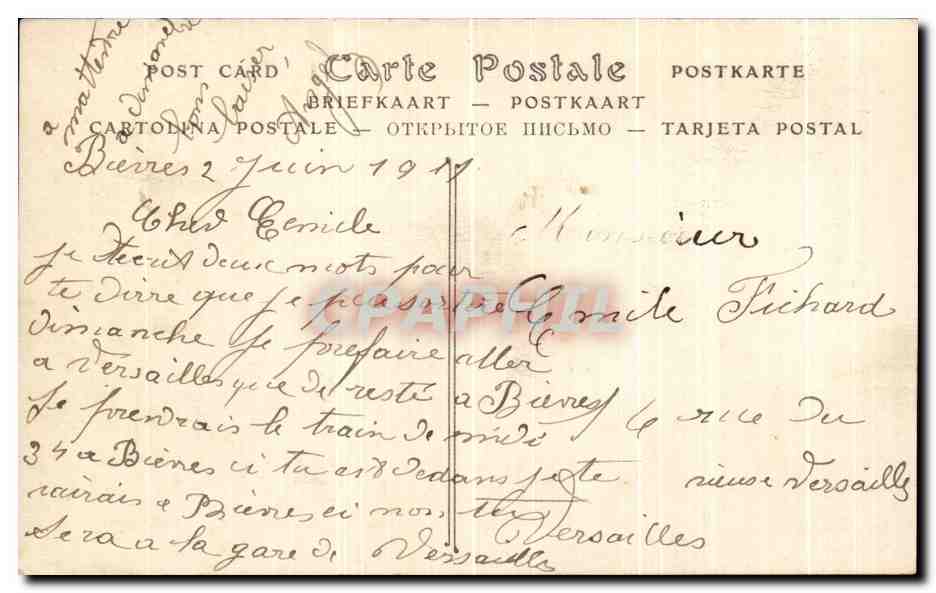 POST CARD Carte Postale POSTKARTE
BRIEFKAART — POSTKAART
CARTOLINA POSTALE — ОТКРЫТОЕ ПИСЬМО — TARJETA POSTAL
a
mattendre
a dimanche
bons
baiser
Bièvres 2 Juin 1911
Cher Emile
je tecrit deux mots pour
te dirre que je
dimanche je prefaire aller
a Versailles que de resté a Bièvres
Je prendrais le train de midi
34 a Bièvres ci tu est dedans je te
rairais a Bièvres ci non tu
sera a la gare de Versailles
Monsieur
Emile Fichard
6 rue du
vieuse Versailles
Versailles
CPAPHIL